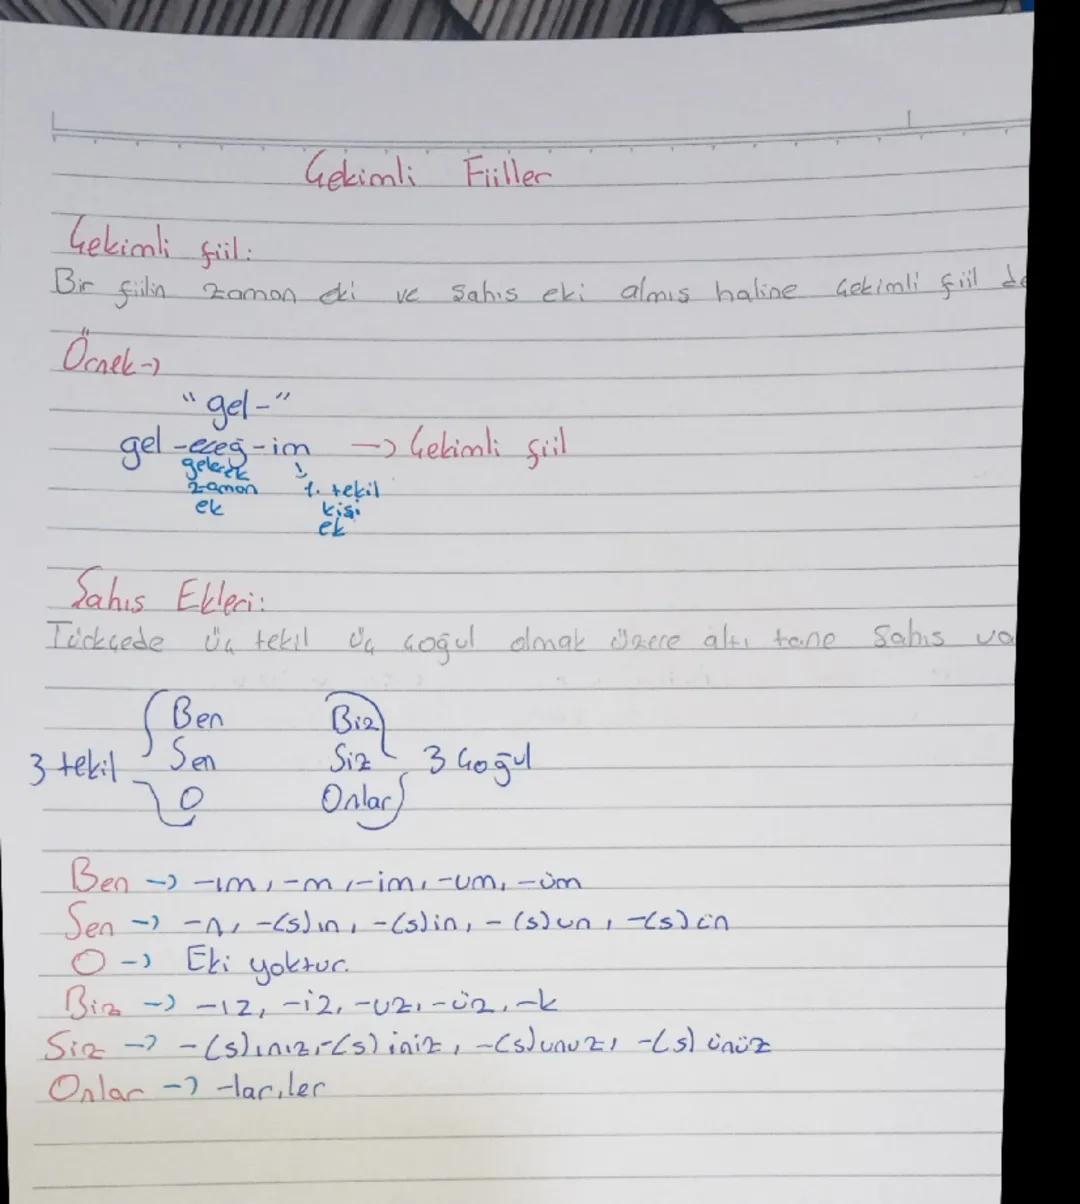 Çekimli Fiiller
Çekimli fiil:
Bir fiilin zaman eki ve şahıs eki almış haline çekimli fiil de
Örnek →
"gel-"
gel -eceğ -im → Çekimli fiil
gelecek zaman ek
1. tekil kişi ek
Şahıs Ekleri:
Türkçede üç tekil üç çoğul olmak üzere altı tane şahıs va
Ben Biz
3 tekil Sen Siz 3 çoğul
O Onlar
Ben → -ım, -m, -im, -um, -üm
Sen → -n, -(s)ın, -(s)in, -(s)un, -(s)ün
O → Eki yoktur.
Biz → -ız, -iz, -uz, -üz, -k
Siz → -(s)ınız, -(s)iniz, -(s)unuz, -(s)ünüz
Onlar → -lar, ler